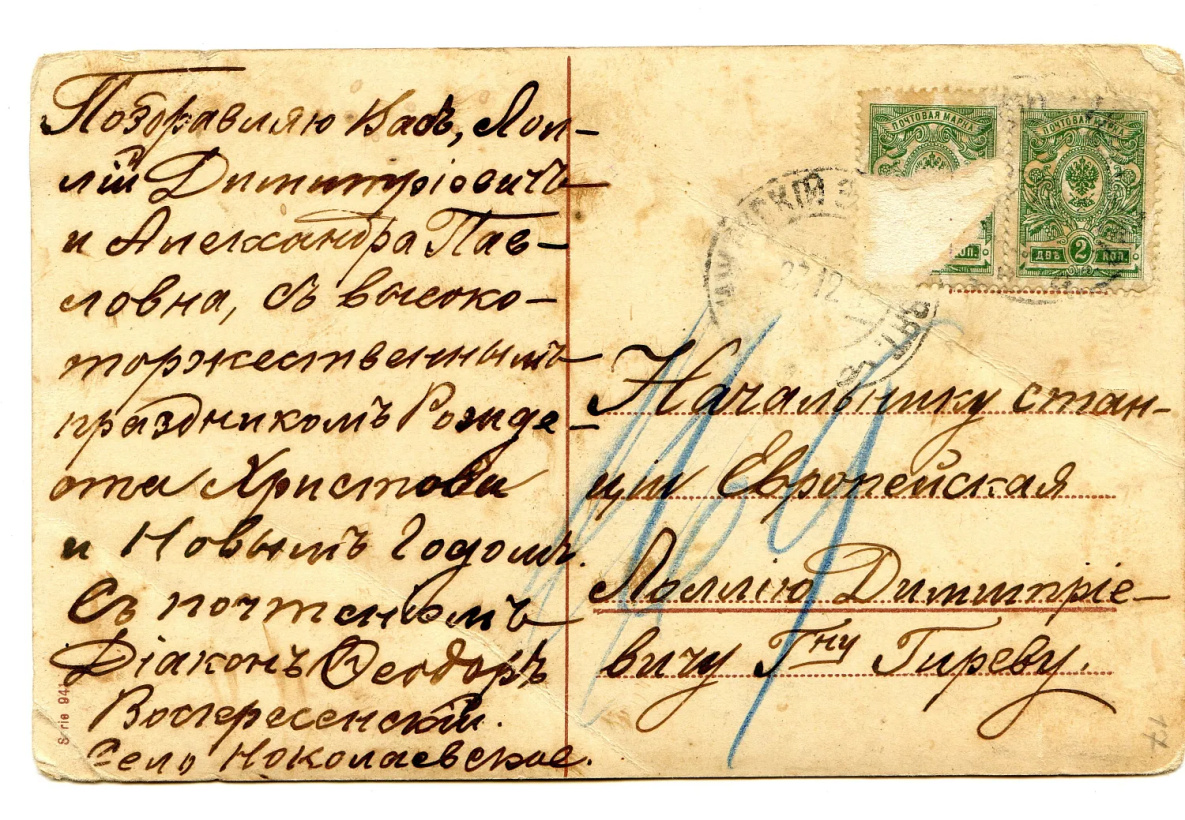 Поздравляю Васъ, Лол-
лій Димитріовичъ
и Александра Пав-
ловна, съ высоко-
торжественнымъ
праздникомъ Рожде-
ста Христова
и Новымъ Годомъ.
Съ почтеніемъ
Діаконъ Ѳеодоръ
Воскресенскій.
Село Николаевское.
Serie
ПОЧТОВАЯ МАРКА
ПОЧТОВАЯ МАРКА
КОП.
ДВѢ 2 КОП.
27 12
Начальнику стан-
ціи Европейская
Лоллію Димитріе-
вичу Гну Гиреву.
17